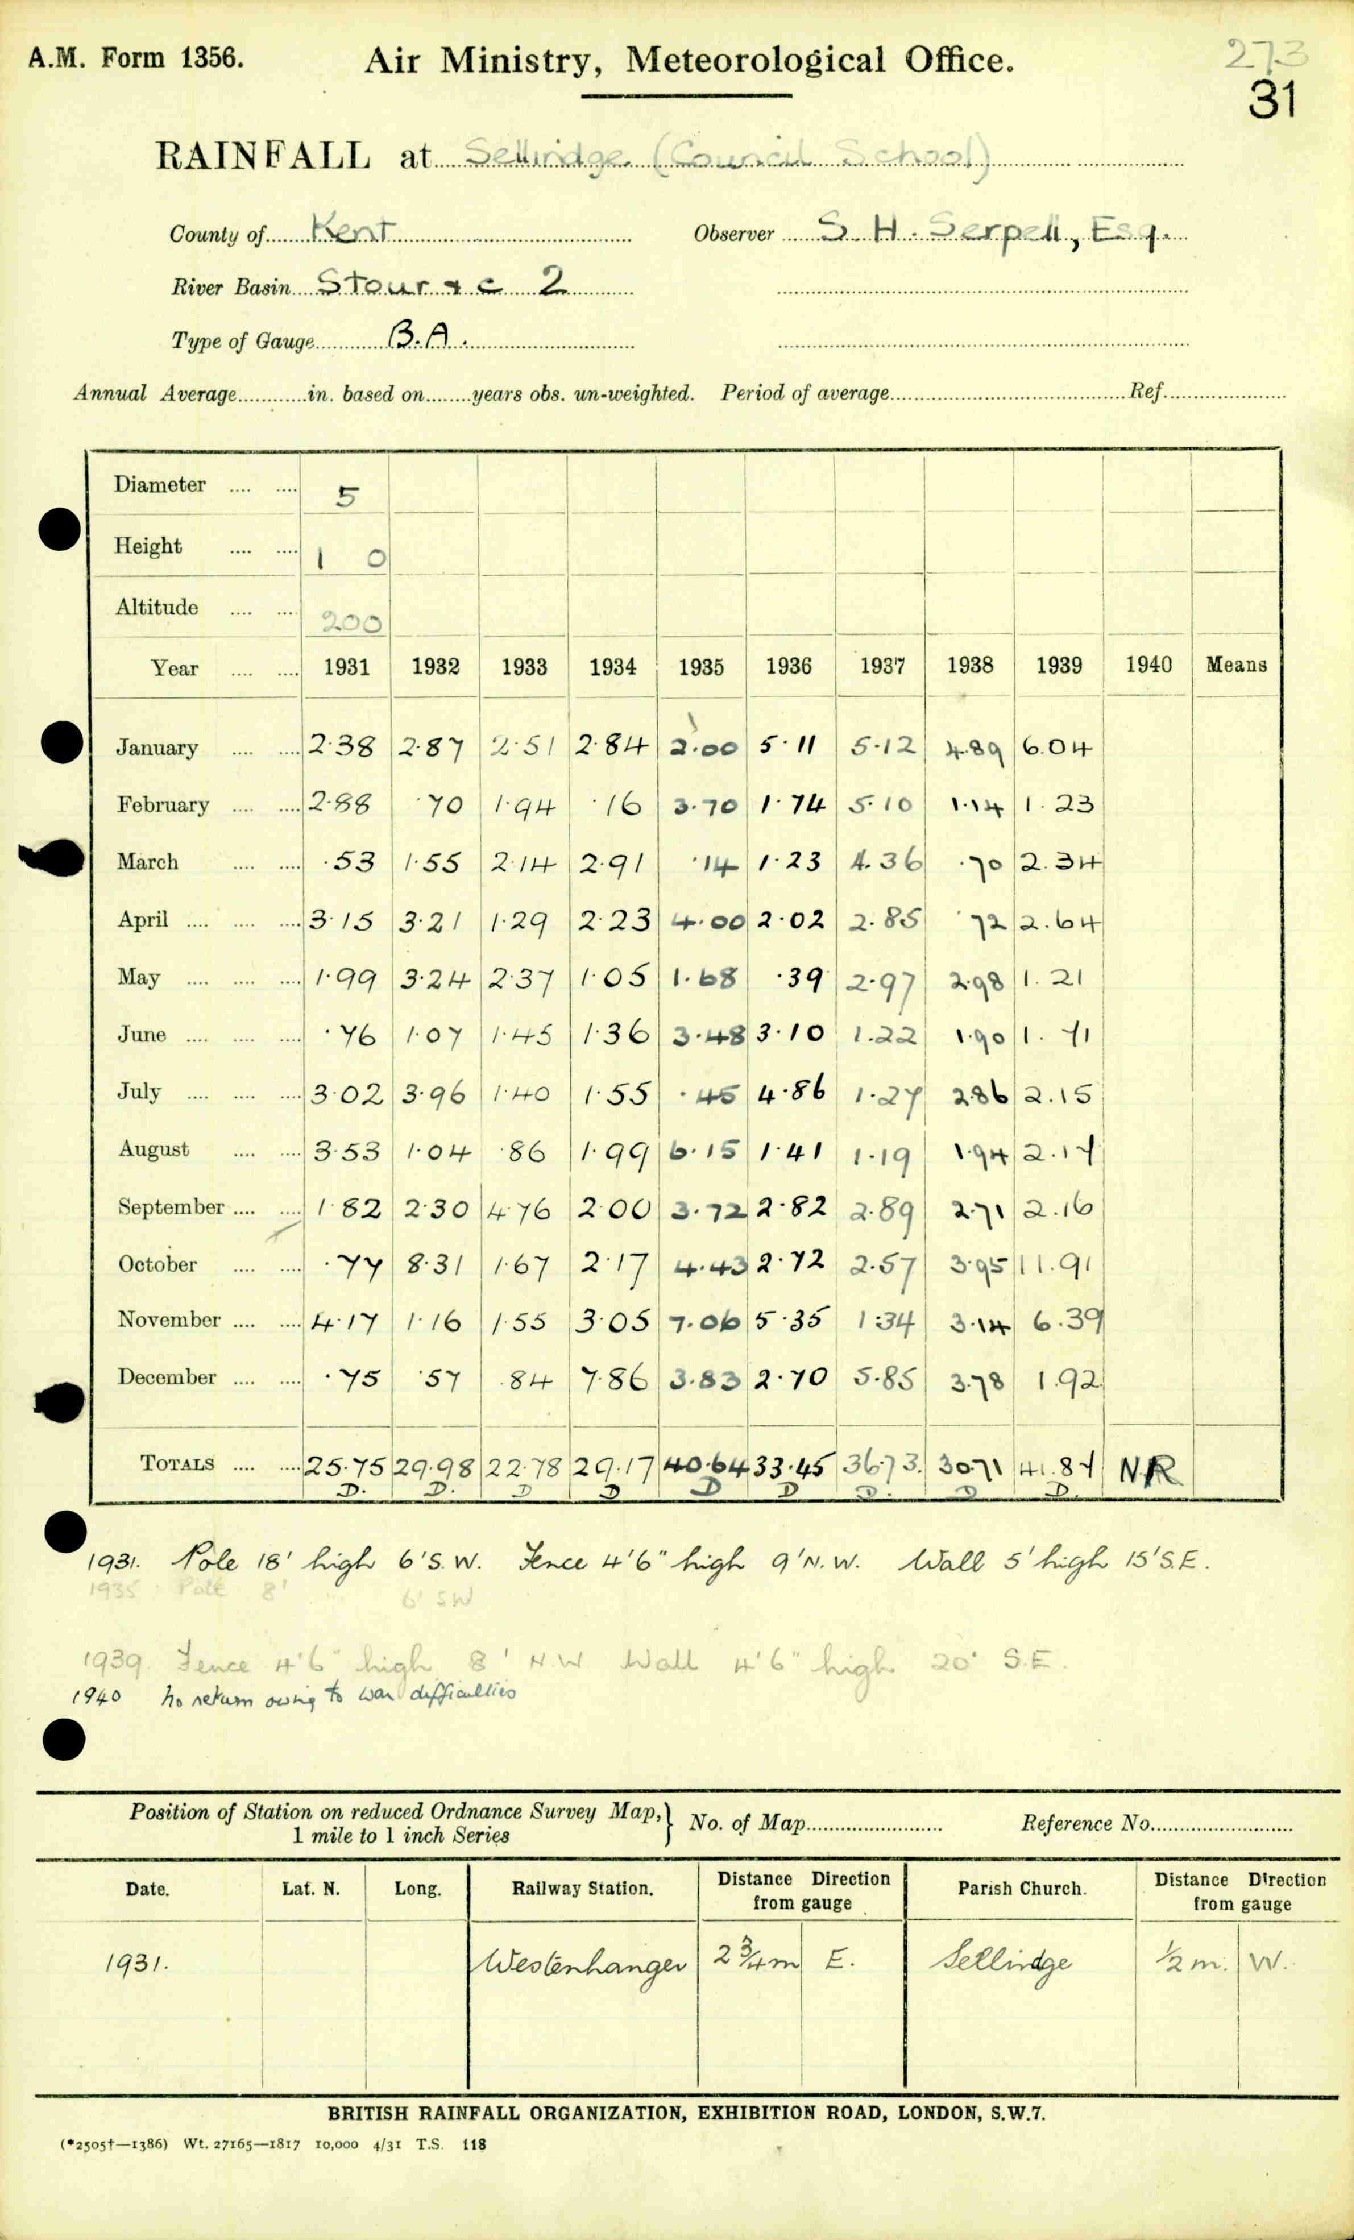 A.M. Form 1356. Air Ministry, Meteorological Office. 273
31
RAINFALL at Sellindge (Council School)
County of Kent Observer S. H. Serpell, Esq.
River Basin Stour & c 2
Type of Gauge B.A.
Annual Average in. based on years obs. un-weighted. Period of average Ref.
Diameter 5
Height 1 0
Altitude 200
Year 1931 1932 1933 1934 1935 1936 1937 1938 1939 1940 Means
January 2.38 2.87 2.51 2.84 2.00 5.11 5.12 4.89 6.04
February 2.88 .70 1.94 .16 3.70 1.74 5.10 1.14 1.23
March .53 1.55 2.14 2.91 .14 1.23 4.36 .70 2.34
April 3.15 3.21 1.29 2.23 4.00 2.02 2.85 .72 2.64
May 1.99 3.24 2.37 1.05 1.68 .39 2.97 2.98 1.21
June .76 1.07 1.45 1.36 3.48 3.10 1.22 1.90 1.71
July 3.02 3.96 1.40 1.55 .45 4.86 1.27 2.86 2.15
August 3.53 1.04 .86 1.99 6.15 1.41 1.19 1.94 2.17
September 1.82 2.30 4.76 2.00 3.72 2.82 2.89 2.71 2.16
October .77 8.31 1.67 2.17 4.43 2.72 2.57 3.95 11.91
November 4.17 1.16 1.55 3.05 7.06 5.35 1.34 3.14 6.39
December .75 .57 .84 7.86 3.83 2.70 5.85 3.78 1.92
TOTALS 25.75 29.98 22.78 29.17 40.64 33.45 36.73. 30.71 41.87 NR
D. D. D D D D D. D D.
1931. Pole 18' high 6' S.W. Fence 4'6" high 9' N.W. Wall 5' high 15' S.E.
1935 Pole 8' 6' SW
1939. Fence 4'6" high 8' NW Wall 4'6" high 20' S.E.
1940 No return owing to war difficulties
Position of Station on reduced Ordnance Survey Map, No. of Map Reference No.
1 mile to 1 inch Series
Date. Lat. N. Long. Railway Station. Distance Direction from gauge Parish Church. Distance Direction from gauge
1931. Westenhanger 2 3/4 m E. Sellindge 1/2 m. W.
BRITISH RAINFALL ORGANIZATION, EXHIBITION ROAD, LONDON, S.W.7.
(*2505†—1386) Wt. 27165—1817 10,000 4/31 T.S. 118